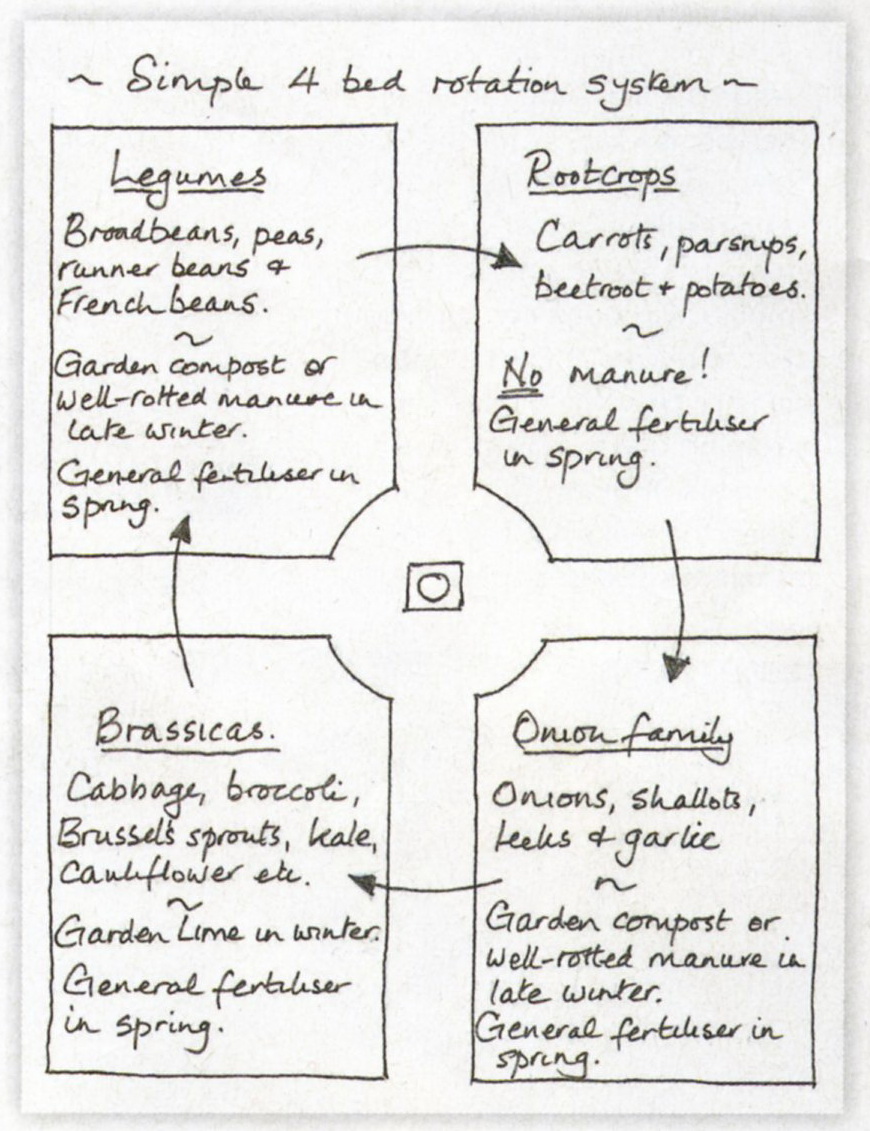 ~ Simple 4 bed rotation system ~
Legumes
Broadbeans, peas,
runner beans &
French beans.
~
Garden compost or
well-rotted manure in
late winter.
General fertiliser in
spring.
Rootcrops
Carrots, parsnips,
beetroot + potatoes.
~
No manure!
General fertiliser
in spring.
Brassicas.
Cabbage, broccoli,
Brussels sprouts, kale,
Cauliflower etc.
~
Garden Lime in winter.
General fertiliser
in spring.
Onion family
Onions, shallots,
leeks & garlic
~
Garden compost or
well-rotted manure in
late winter.
General fertiliser in
spring.